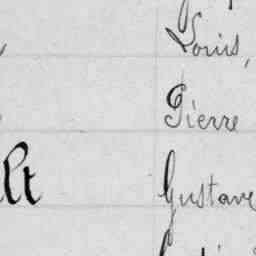 Louis,
Pierre
lt Gustave